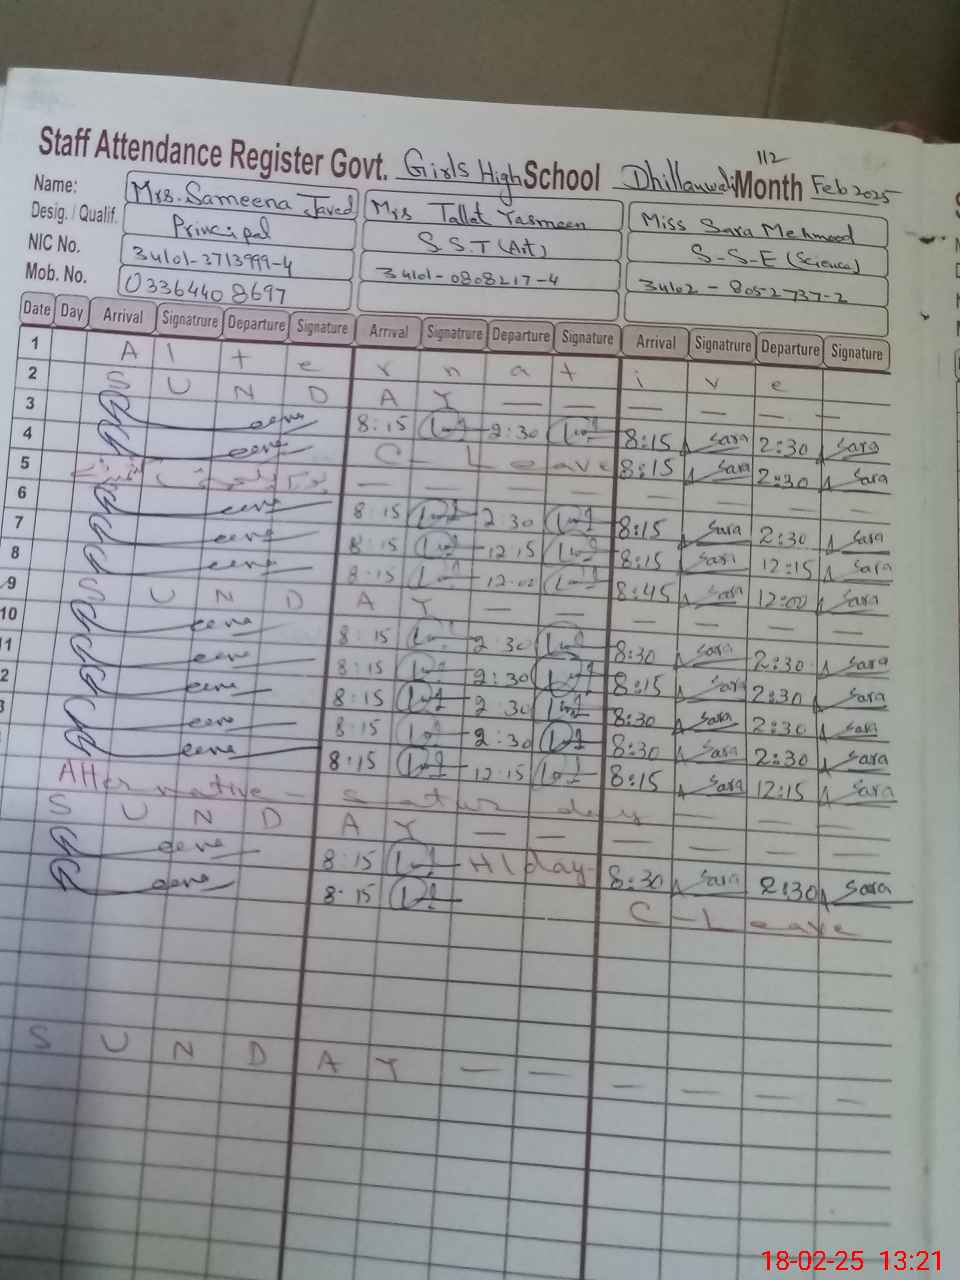 Staff Attendance Register Govt. Girls High School Dhillanwali Month Feb 2025
112
Name: Mrs. Sameena Javed Mrs Tallat Yasmeen Miss Sara Mehmood
Desig. / Qualif. Principal S.S.T (Art) S.S.E (Science)
NIC No. 34101-2713999-4 34101-0808217-4 34102-8052737-2
Mob. No. 03364408697
Date Day Arrival Signatrure Departure Signature Arrival Signatrure Departure Signature Arrival Signatrure Departure Signature
1 A l t e r n a t i v e
2 S U N D A Y — — — — — —
3 8:15 2:30 8:15 Sara 2:30 Sara
4 C - Leave 8:15 Sara 2:30 Sara
5 — — — — — — — —
6 8:15 2:30 8:15 Sara 2:30 Sara
7 8:15 12:15 8:15 Sara 12:15 Sara
8 8:15 12:00 8:45 Sara 12:00 Sara
9 S U N D A Y — — — — — —
10 8:15 2:30 8:30 Sara 2:30 Sara
11 8:15 2:30 8:15 Sara 2:30 Sara
2 8:15 2:30 8:30 Sara 2:30 Sara
3 8:15 2:30 8:30 Sara 2:30 Sara
8:15 12:15 8:15 Sara 12:15 Sara
Alternative Saturday — — —
S U N D A Y — — — — — —
8:15 H/day 8:30 Sara 2:30 Sara
8:15 C-Leave
S U N D A Y — — — — — —
18-02-25 13:21